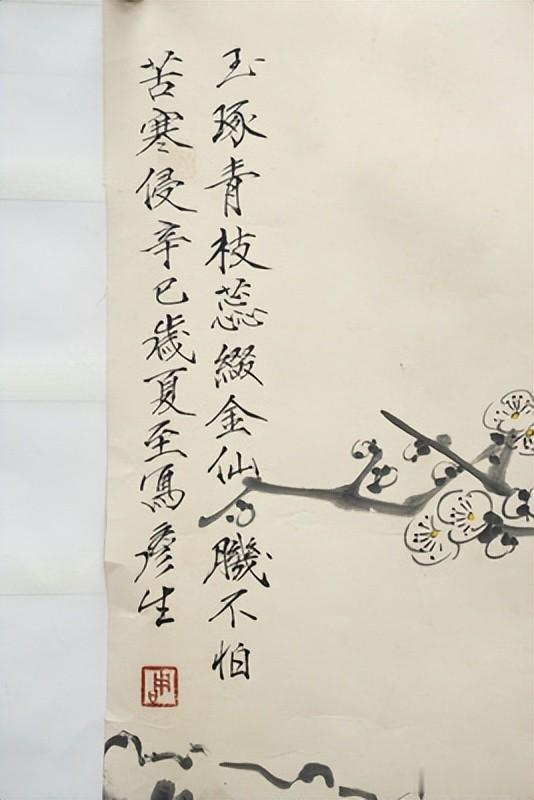 玉琢青枝蕊綴金仙不怕
苦寒侵辛巳歲夏至寫彥生